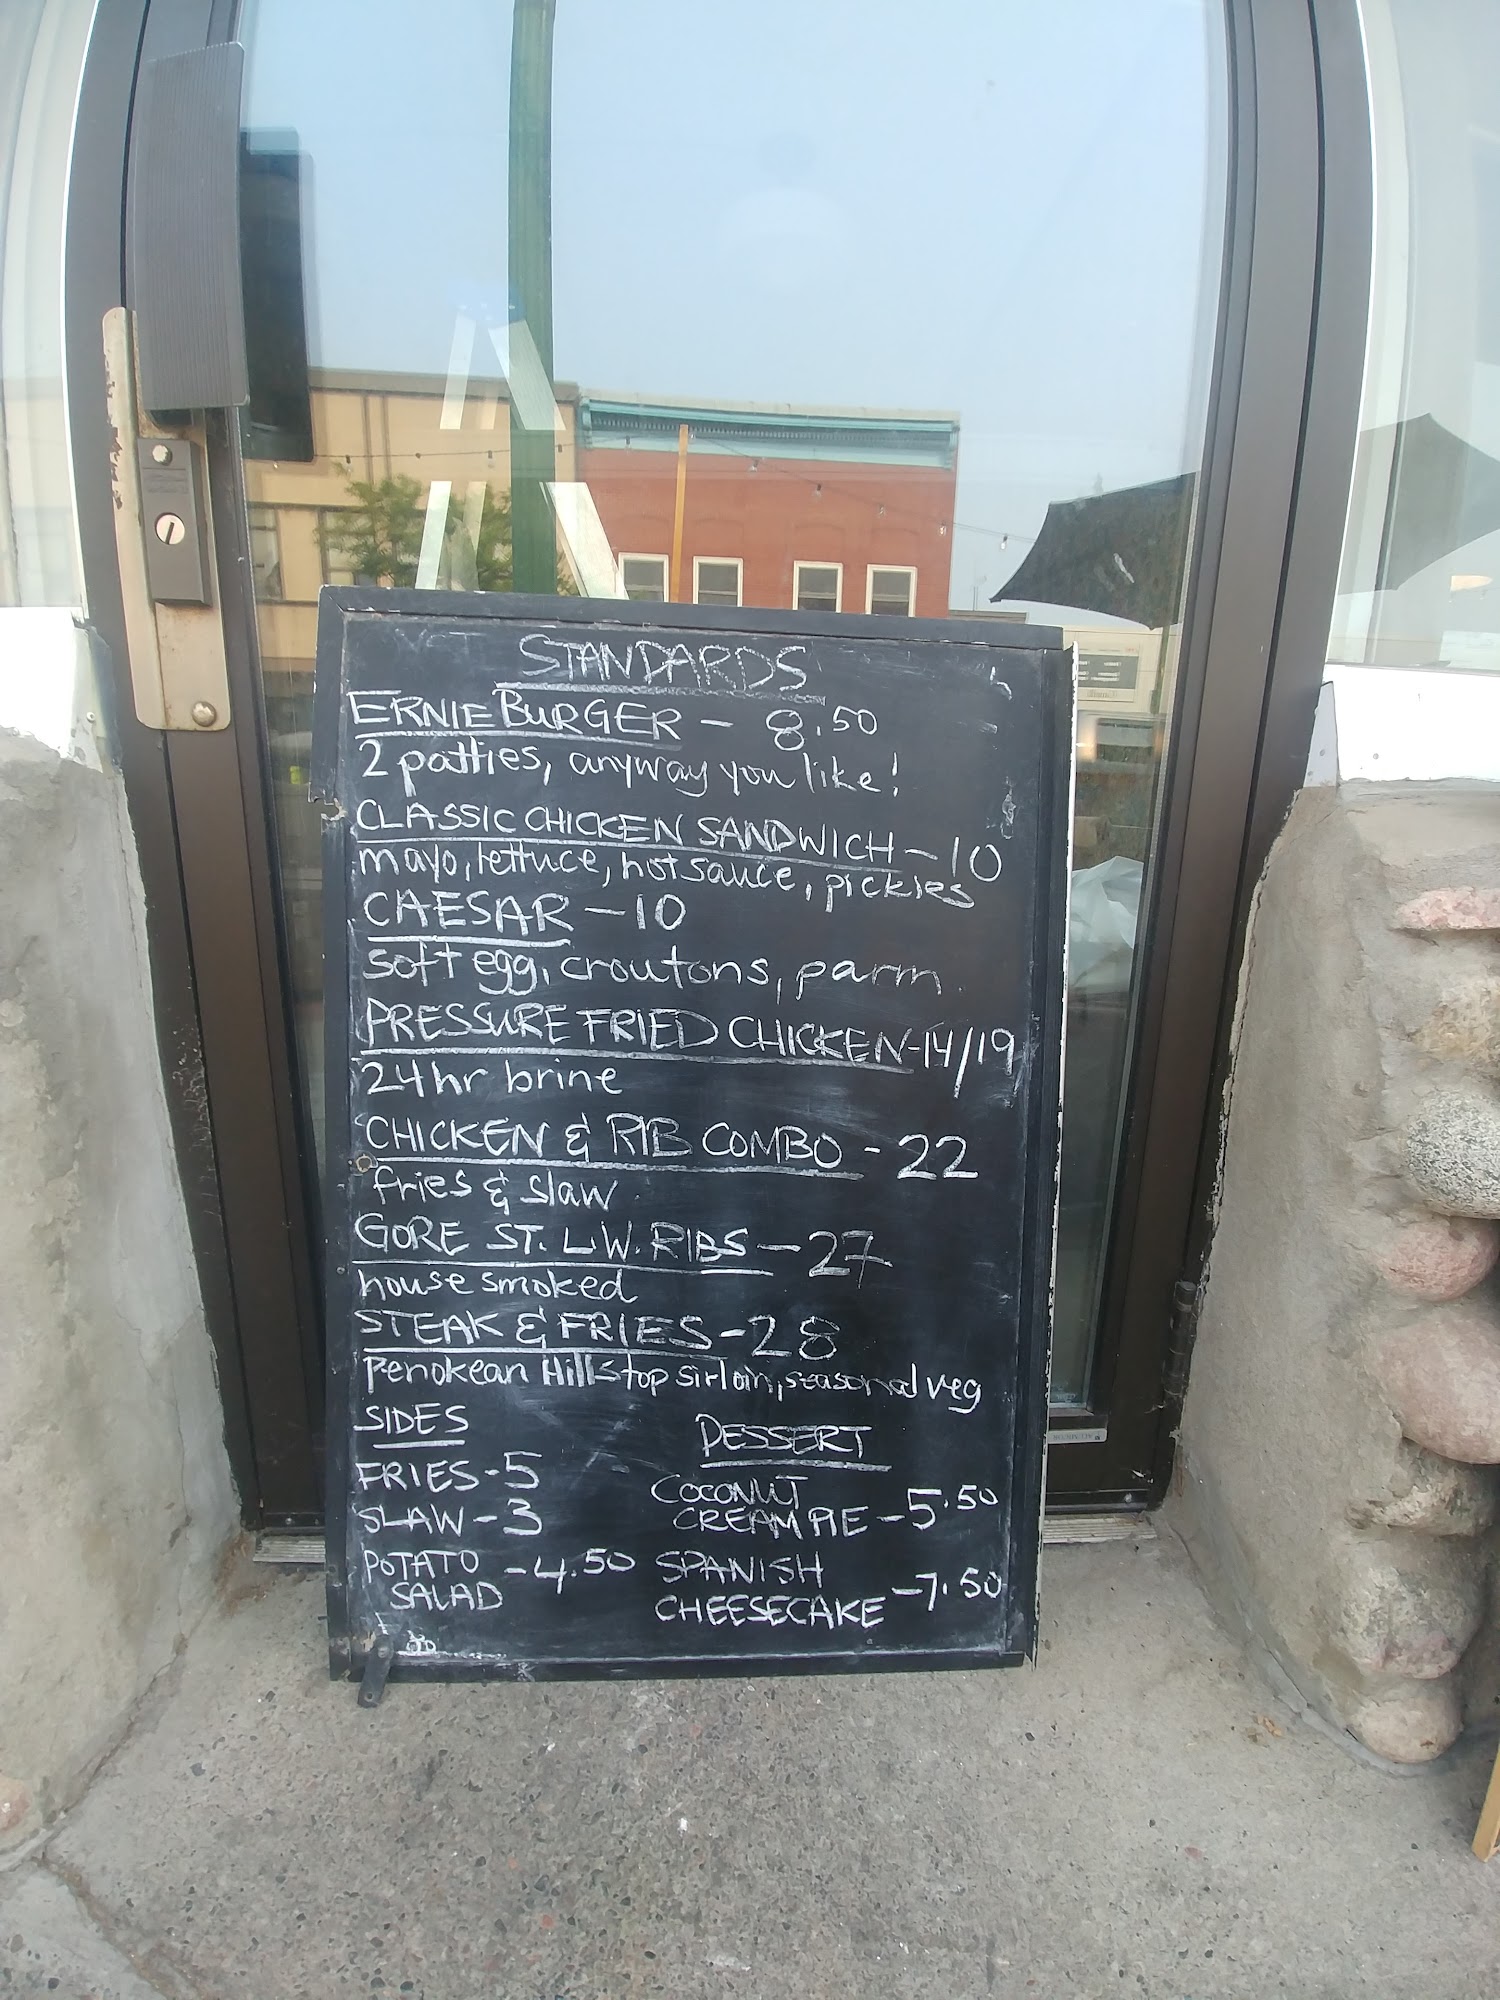 STANDARDS
ERNIE BURGER - 8.50
2 patties, anyway you like!
CLASSIC CHICKEN SANDWICH - 10
mayo, lettuce, hot sauce, pickles
CAESAR - 10
soft egg, croutons, parm.
PRESSURE FRIED CHICKEN - 14/19
24hr brine
CHICKEN & RIB COMBO - 22
fries & slaw
GORE ST. L.W. RIBS - 27
house smoked
STEAK & FRIES - 28
Penokean Hills top sirloin, seasonal veg
SIDES
FRIES - 5
SLAW - 3
POTATO
SALAD - 4.50
DESSERT
COCONUT
CREAM PIE - 5.50
SPANISH
CHEESECAKE - 7.50